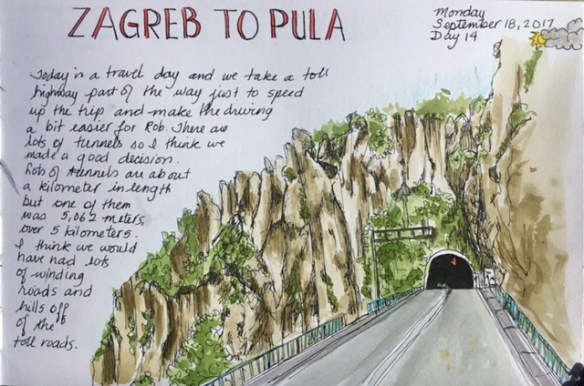 ZAGREB TO PULA
Monday
September 18, 2017
Day 14
Today is a travel day and we take a toll
highway part of the way just to speed
up the trip and make the driving
a bit easier for Rob. There are
lots of tunnels so I think we
made a good decision.
Lots of tunnels are about
a kilometer in length
but one of them
was 5,062 meters
over 5 kilometers.
I think we would
have had lots
of winding
roads and
hills off
of the
toll roads.